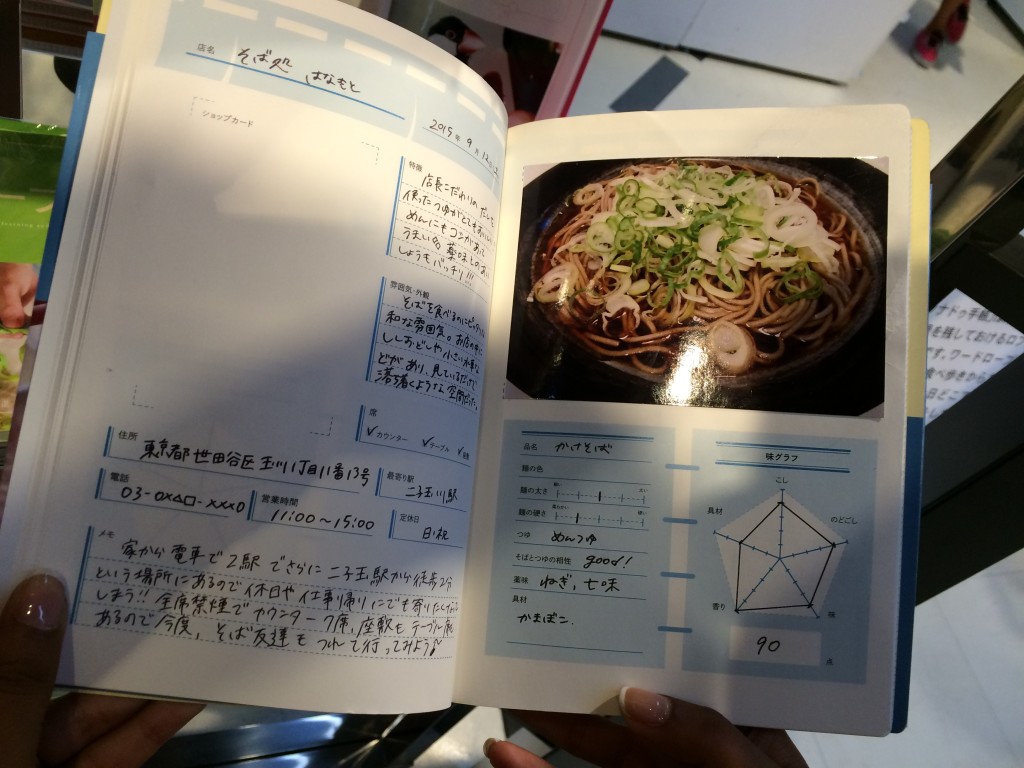 店名
そば処 はなもと
ショップカード
2015年 9月 12日
特徴
店長こだわりの だしを
使った つゆが とても おいしい。
めんにも コシがあって
うまい!! 薬味との あい
しょうも バッチリ!!!
雰囲気・外観
そばを食べるのにピッタリな
和な雰囲気。お店の中に
ししおどしや 小さい水車な
どが あり、見ているだけで
落ち着くような 空間だった。
席
✓カウンター ✓テーブル
住所
東京都 世田谷区 玉川1丁目11番13号
最寄り駅
二子玉川駅
電話
03-0×△□-×××0
営業時間
11:00〜15:00
定休日
日・祝
メモ
家から 電車で 2駅 でさらに 二子玉駅から 徒歩2分
という場所にあるので 休日や 仕事帰りにでも 寄りたし
しまう!! 全席禁煙で カウンター席、座敷も テーブル席
あるので 今度、そば友達も つれて 行ってみよう♪
品名 かけそば
麺の色
麺の太さ
麺の硬さ
つゆ めんつゆ
そばとつゆの相性 good!
薬味 ねぎ、七味
具材
かまぼこ
味グラフ
こし
のどごし
味
香り
具材
90 点
ナドゥ手帳
を残しておけるロン
です。ワードロー
食べ歩きから
日どこ